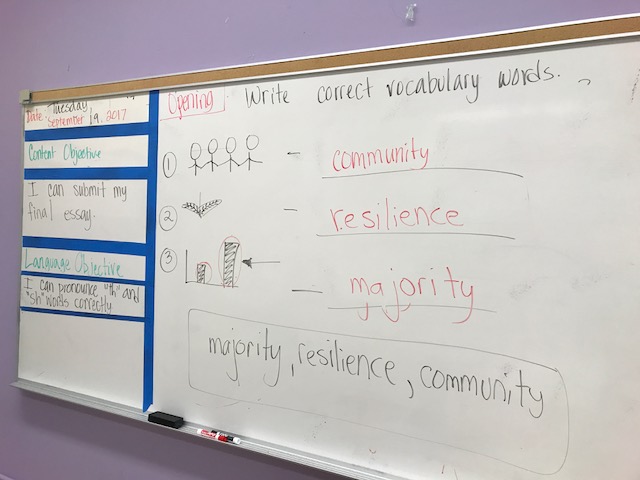 Date: Tuesday,
September 19, 2017
Content Objective
I can submit my
final essay.
Language Objective
I can pronounce "th" and
"sh" words correctly
Opening Write correct vocabulary words.
1 - community
2 - resilience
3 - majority
majority, resilience, community